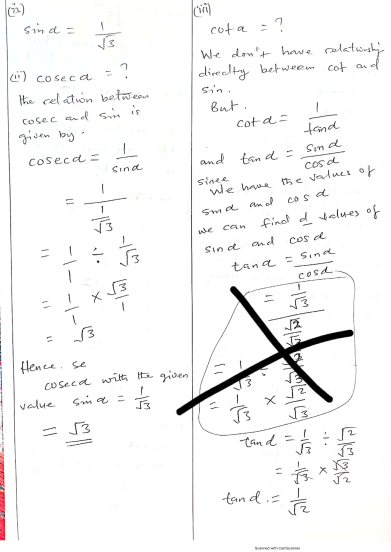 (ii)
sin α = 1/√3
(ii) cosec α = ?
the relation between
cosec and sin is
given by.
cosec α = 1/sin α
= 1/(1/√3)
= 1/1 ÷ 1/√3
= 1/1 × √3/1
= √3
Hence. se
cosec α with the given
value sin α = 1/√3
= √3
(iii)
cot α = ?
We don't have relationship
direclty between cot and
sin.
But.
cot α = 1/tan α
and tan α = sin α/cos α
since
We have the values of
sin α and cos α
we can find d values of
sin α and cos α
tan α = sin α/cos α
= 1/√3
√2/√3
= 1/√3 ÷ √2/√3
= 1/√3 × √2/√3
tan α = 1/√3 ÷ √2/√3
= 1/√3 × √3/√2
tan α = 1/√2
Scanned with CamScanner